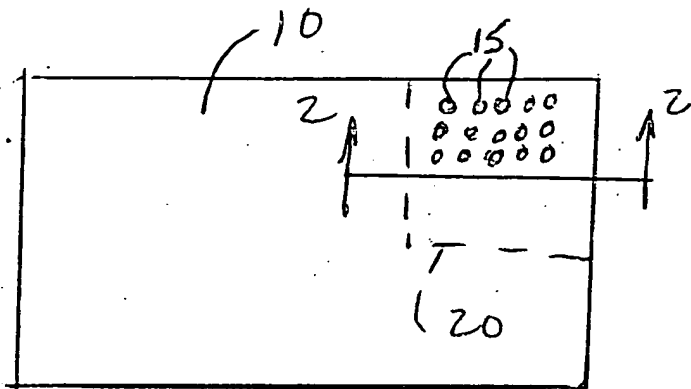 10
15
2 2
20